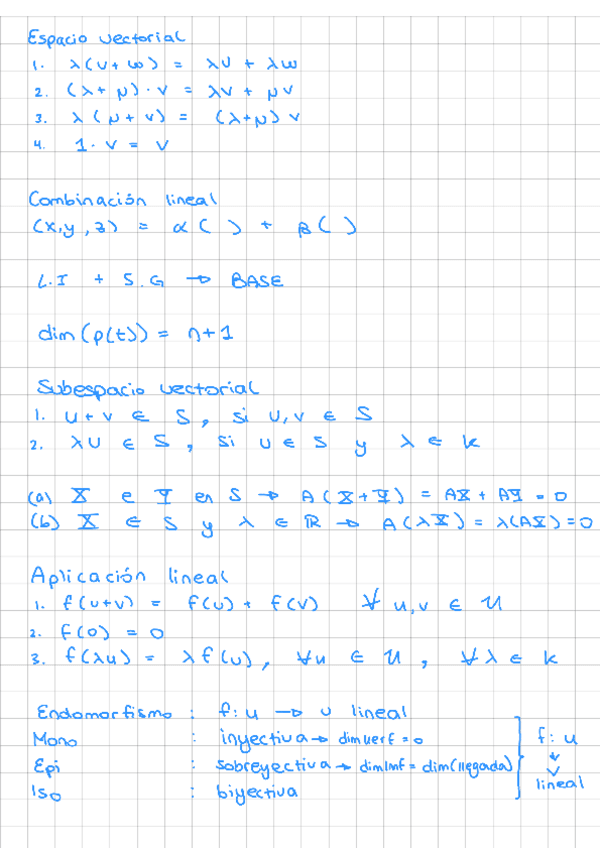 Espacio vectorial
1. λ(u+w) = λu + λw
2. (λ+μ)·v = λv + μv
3. λ(μ+v) = (λ+μ)v
4. 1·v = v
Combinación lineal
(x,y,z) = α( ) + β( )
L.I + S.G → BASE
dim(p(t)) = n+1
Subespacio vectorial
1. u+v ∈ S, si u,v ∈ S
2. λu ∈ S, si u ∈ S y λ ∈ k
(a) X e Y en S → A(X+Y) = AX + AY = 0
(b) X ∈ S y λ ∈ ℝ → A(λX) = λ(AX) = 0
Aplicación lineal
1. f(u+v) = f(u) + f(v) ∀ u,v ∈ U
2. f(0) = 0
3. f(λu) = λf(u), ∀u ∈ U, ∀λ ∈ k
Endomorfismo : f: u → u lineal
Mono : inyectiva → dim Kerf = 0
Epi : sobreyectiva → dim Imf = dim(llegada)
Iso : biyectiva
f: u
↓
v
lineal